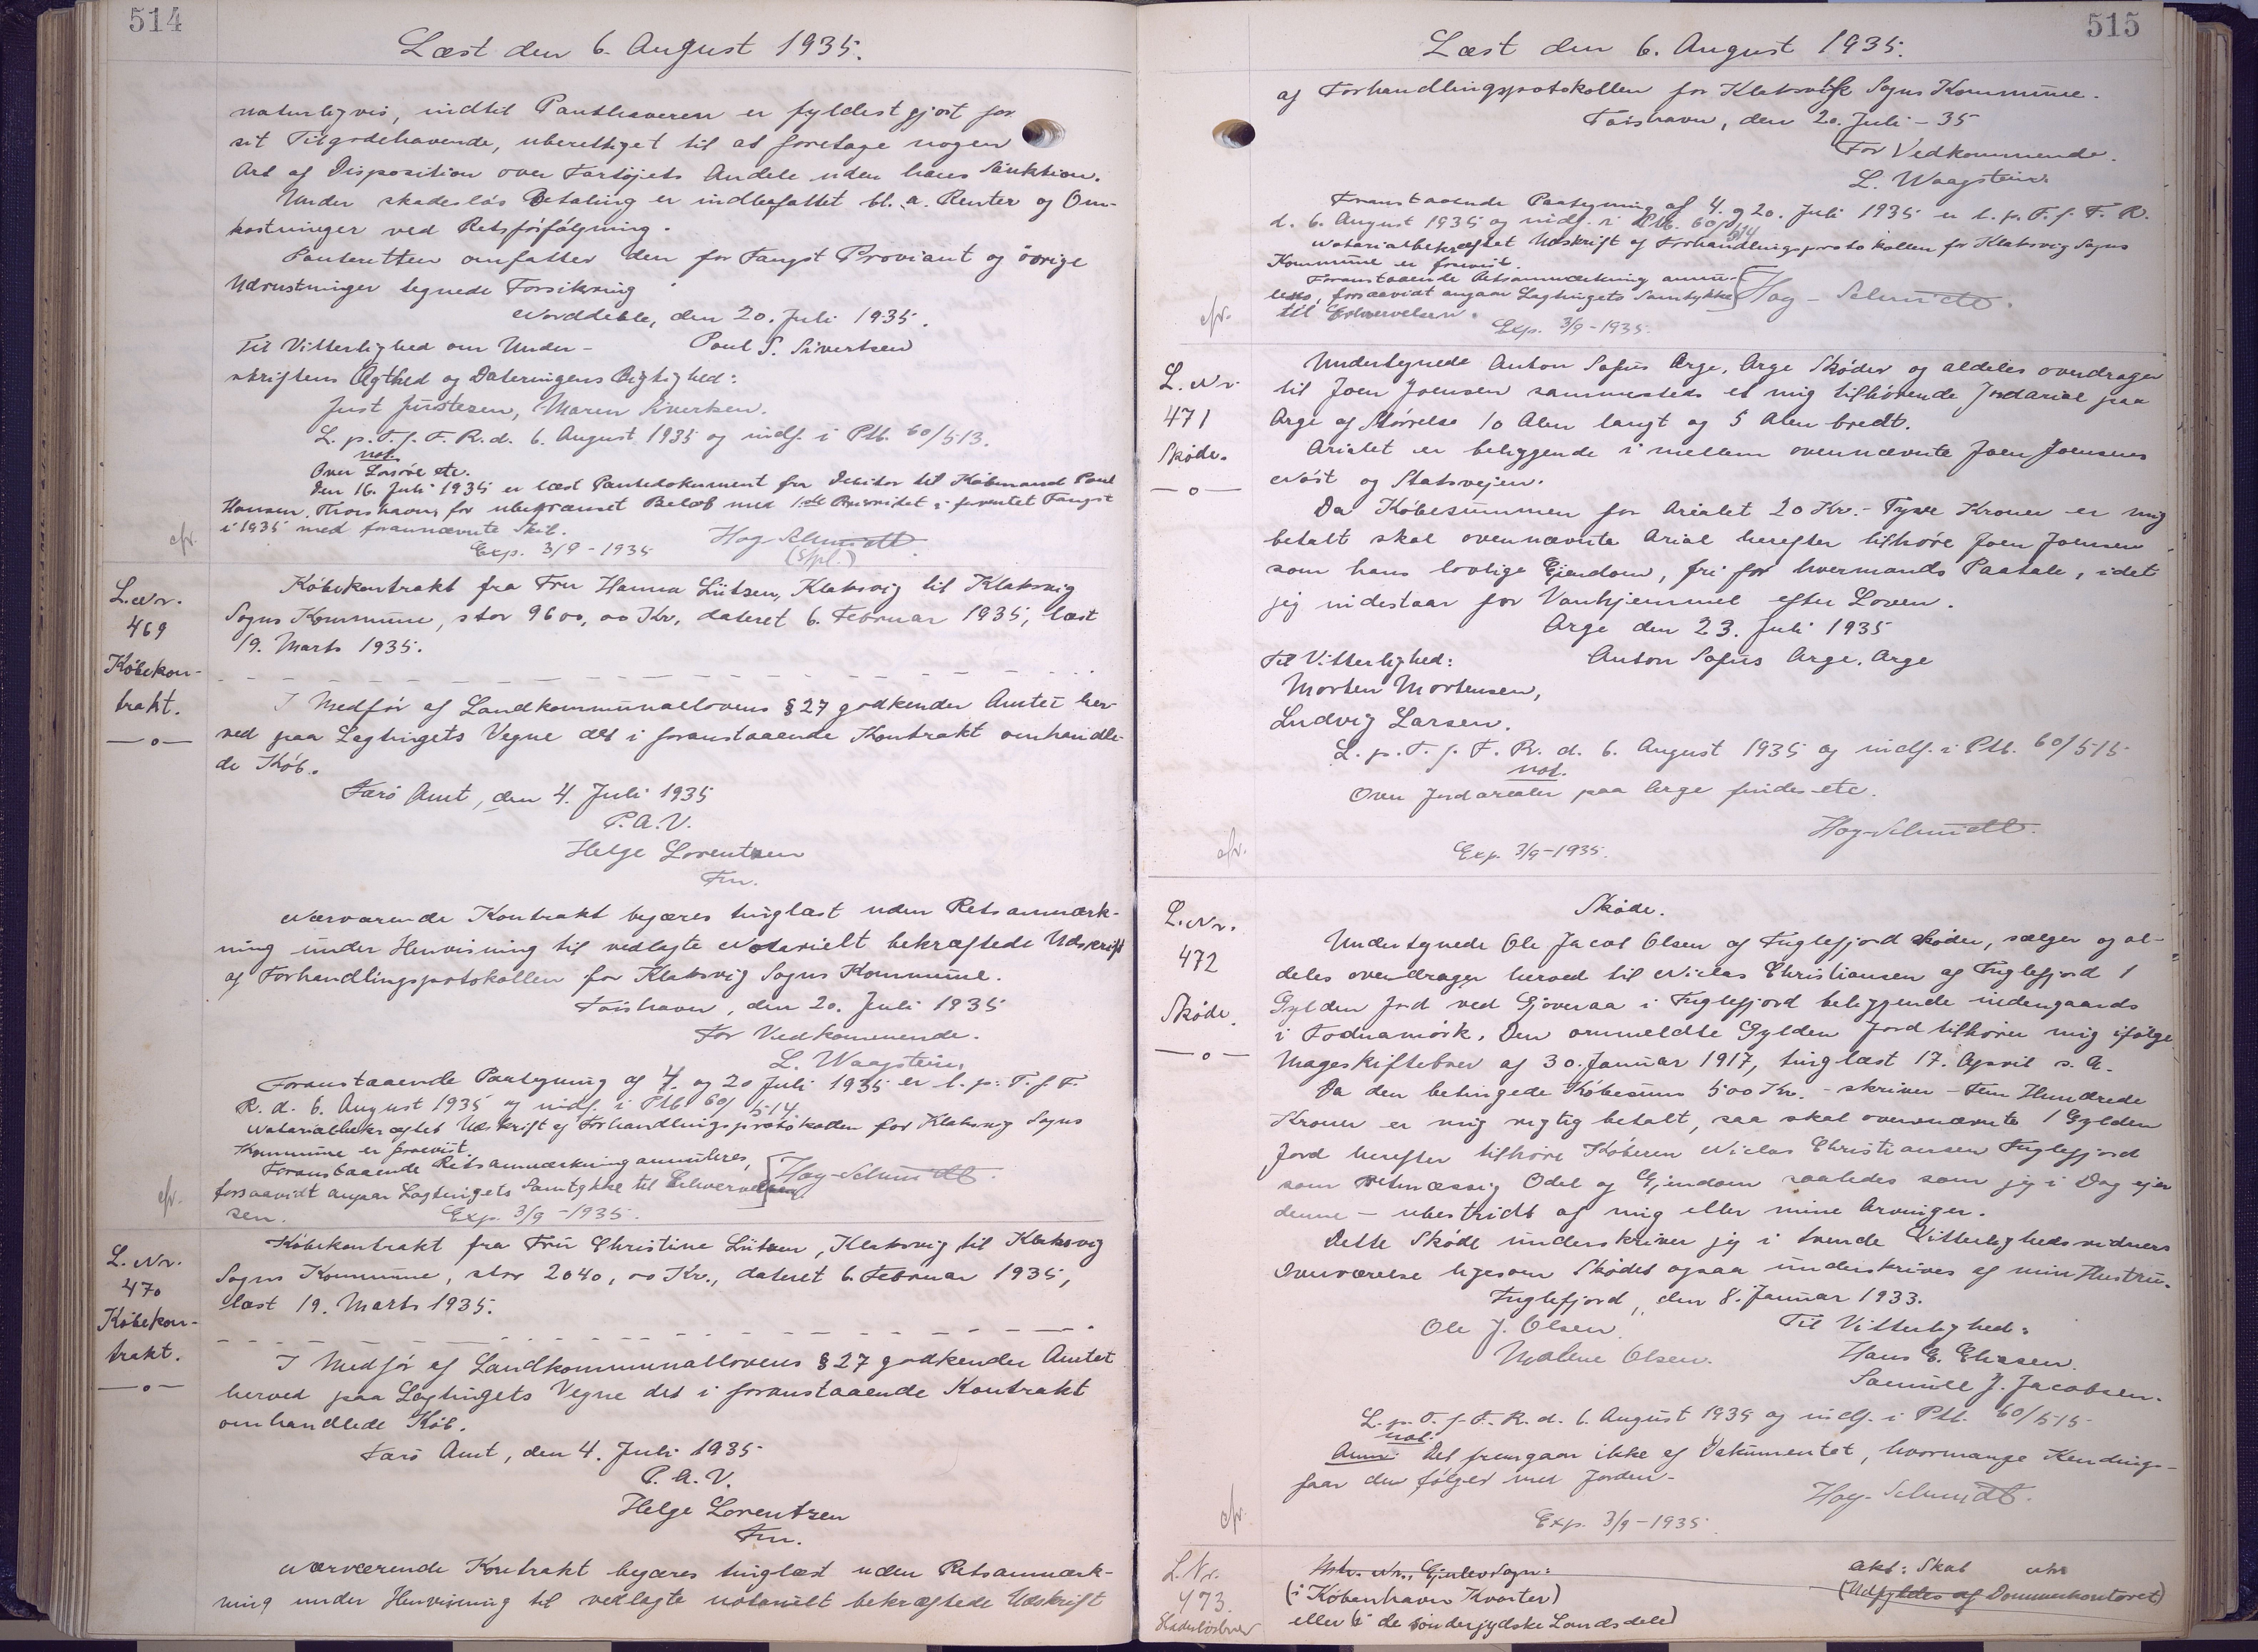 514
Læst den 6. August 1935.
naturligvis, indtil Panthaveren er fyldestgjort for
sit Tilgodehavende, uberettiget til at foretage nogen
Art af Disposition over Fartøjets Andele uden hans Sanktion.
Under skadesløs Betaling er indbefattet bl. a. Renter og Om-
kostninger ved Retsforfølgning.
Panteretten omfatter den for Fangst Proviant og övrige
Udrustninger tegnede Forsikring.
Norddeble, den 20. Juli 1935.
Til Vitterlighed om Under- Poul S. Sivertsen
skriftens Ægthed og Dateringens Rigtighed:
Just Justesen, Maren Sivertsen.
L. p. T. f. F. R. d. 6. August 1935 og indf. i Ptb. 60/513.
not.
Over Løsøre etc.
Den 16. Juli 1935 er læst Pantedokument fra Debitor til Købmand Poul
Hansen, Thorshavn, for ubegrænset Beløb med 1ste Prioritet i forventet Fangst
i 1935 med forannævnte Skib.
Exp. 3/9-1935 Hoy-Schmidt
(Spl.)
cfr.
L. Nr.
469
Købekon-
trakt.
—o—
Købekontrakt fra Fru Hanna Lützen, Klaksvig til Klaksvig
Sogns Kommune, stor 9600,00 Kr., dateret 6. Februar 1935, læst
19. Marts 1935.
I Medfør af Landkommunallovens § 27 godkender Amtet her-
ved paa Lagtingets Vegne det i foranstaaende Kontrakt omhandle-
de Køb.
Færö Amt, den 4. Juli 1935
P.A.V.
Helge Lorentzen
Fm.
Nærværende Kontrakt begæres tinglæst uden Retsanmærk-
ning under Henvisning til vedlagte Notarielt bekræftede Udskrift
af Forhandlingsprotokollen for Klaksvig Sogns Kommune.
Tórshavn, den 20. Juli 1935
For Vedkommende.
L. Waagstein.
Foranstaaende Paategning af 4. og 20 Juli 1935 er l. p. T. f. F.
R. d. 6. August 1935 og indf. i Ptb. 60/514.
Notarialbekræftet Udskrift af Forhandlingsprotokollen for Klaksvig Sogns
Kommune er forevist.
Foranstaaende Retsanmærkning annulleres,
forsaavidt angaar Lagtingets Samtykke til Erhvervelsen
sen. Hoy-Schmidt.
Exp. 3/9-1935.
cfr.
L. Nr.
470
Købekon-
trakt.
—o—
Købekontrakt fra Fru Christine Lützen, Klaksvig til Klaksvig
Sogns Kommune, stor 2040,00 Kr., dateret 6. Februar 1935,
læst 19. Marts 1935.
I Medfør af Landkommunallovens § 27 godkender Amtet
herved paa Lagtingets Vegne det i foranstaaende Kontrakt
omhandlede Køb.
Færö Amt, den 4. Juli 1935
P. A. V.
Helge Lorentzen
Fm.
Nærværende Kontrakt begæres tinglæst uden Retsanmærk-
ning under Henvisning til vedlagte notarielt bekræftede Udskrift
515
Læst den 6. August 1935.
af Forhandlingsprotokollen for Klaksvig Sogns Kommune.
Tórshavn, den 20. Juli - 35
For Vedkommende.
L. Waagstein.
Foranstaaende Paategning af 4. og 20. Juli 1935 er l. p. T. f. F. R.
d. 6. August 1935 og indf. i Ptb. 60/514
Notarialbekræftet Udskrift af Forhandlingsprotokollen for Klaksvig Sogns
Kommune er forevist.
Foranstaaende Retsanmærkning annul-
leres, forsaavidt angaar Lagtingets Samtykke
til Erhvervelsen. Hoy-Schmidt.
Exp. 3/9-1935.
cfr.
L. Nr.
471
Skøde.
—o—
Undertegnede Anton Sofus Arge, Arge Skøder og aldeles overdrager
til Joen Joensen sammesteds et mig tilhørende Jordarial paa
Arge af Størrelse 10 Alen langt og 5 Alen bredt.
Arialet er beliggende i mellem ovennævnte Joen Joensens
Nöst og Statsvejen.
Da Købesummen for Arialet 20 Kr.- Tyve Kroner er mig
betalt skal ovennævnte Arial herefter tilhøre Joen Joensen
som hans lovlige Ejendom, fri for hvermands Paatale, idet
jeg indestaar for Vanhjemmel efter Loven.
Arge den 23. Juli 1935
Til Vitterlighed: Anton Sofus Arge, Arge
Morten Mortensen,
Ludvig Larsen.
L. p. T. f. F. R. d. 6. August 1935 og indf. i Ptb. 60/515
not.
Over Jordarealer paa Arge findes etc.
Hoy-Schmidt.
Exp. 3/9-1935.
cfr.
L. Nr.
472
Skøde.
—o—
Skøde.
Undertegnede Ole Jacob Olsen af Fuglefjord skøder, sælger og al-
deles overdrager herved til Niclas Christiansen af Fuglefjord 1
Gylden Jord ved Gjøveraa i Fuglefjord beliggende indengaards
i Todnamörk. Den ommeldte Gylden Jord tilhører mig ifølge
Mageskiftebrev af 30. Januar 1917, tinglæst 17. April s. A.
Da den betingede Købesum 500 Kr. - skriver - Fem Hundrede
Kroner er mig rigtig betalt, saa skal ovennævnte 1 Gylden
Jord herefter tilhøre Køberen Niclas Christiansen Fuglefjord
som retmæssig Odel og Ejendom saaledes som jeg i Dag ejer
denne - ubestridt af mig eller mine Arvinger.
Dette Skøde underskriver jeg i tvende Vitterlighedsvidners
Overværelse ligesom Skødet ogsaa underskrives af min Hustru.
Fuglefjord, den 8. Januar 1933.
Ole J. Olsen. Til Vitterlighed:
Malene Olsen. Hans E. Eliasen.
Samuel J. Jacobsen.
L. p. T. f. F. R. d. 6. August 1935 og indf. i Ptb. 60/515
not.
Anm: Det fremgaar ikke af Dokumentet, hvormange Kendings-
faar der følger med Jorden.
Hoy-Schmidt.
Exp. 3/9-1935
cfr.
L. Nr.
473.
Skadesløsbrev
Mtr. Nr., Ejerlav Sogn: Akt: Skab Nr.
(i København Kvarter) (Udfyldes af Dommerkontoret)
eller (i de sönderjydske Landsdele)